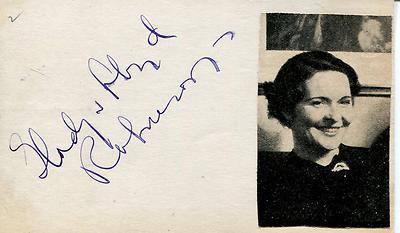 2
Gladys Lloyd
Robinson